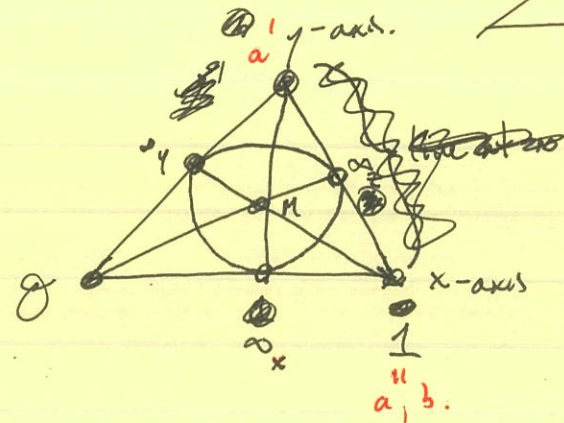 1 y-axis.
a
∞y
∞z
M
0 x-axis
∞x 1
"
a, b.